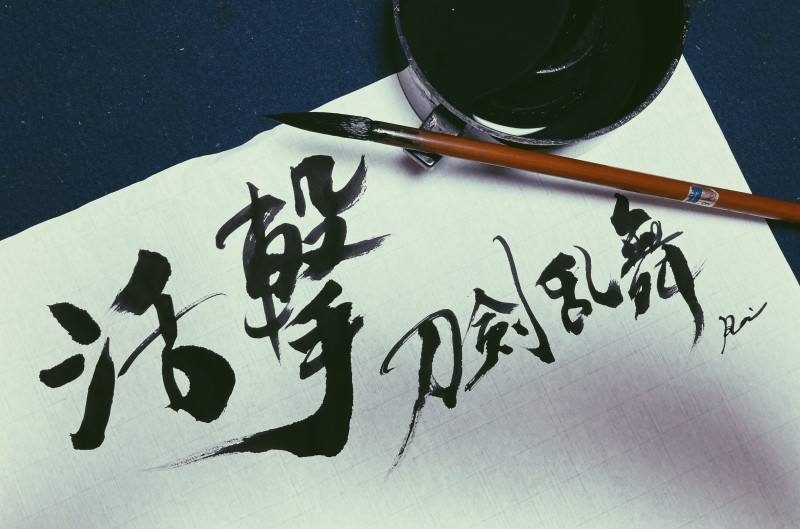 活撃
刀剣乱舞
Rui